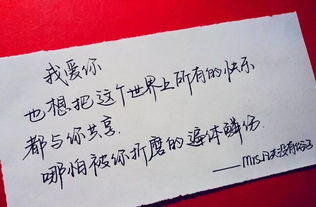 我爱你
也想把这个世界上所有的快乐
都与你共享
哪怕被你折磨的遍体鳞伤
——Mrs.